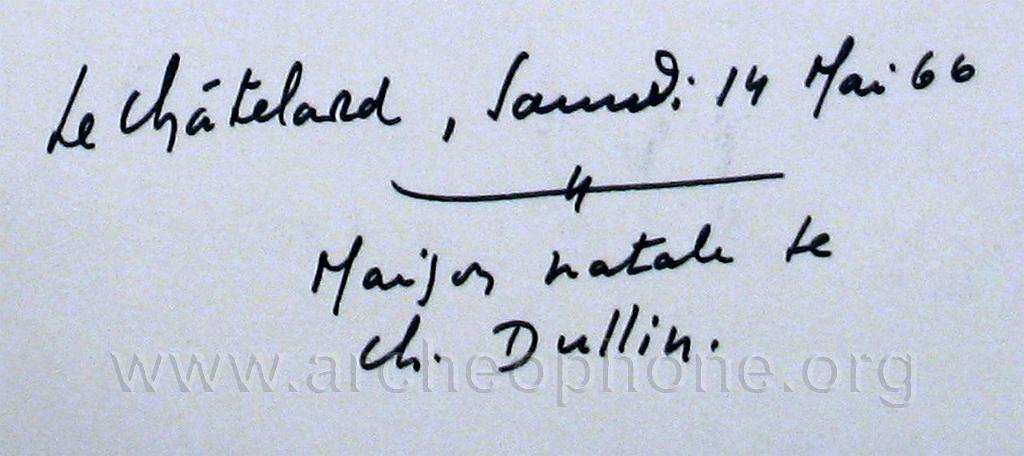 Le Châtelard, Samedi 14 Mai 66
Maison natale de
Ch. Dullin.
www.archeophone.org